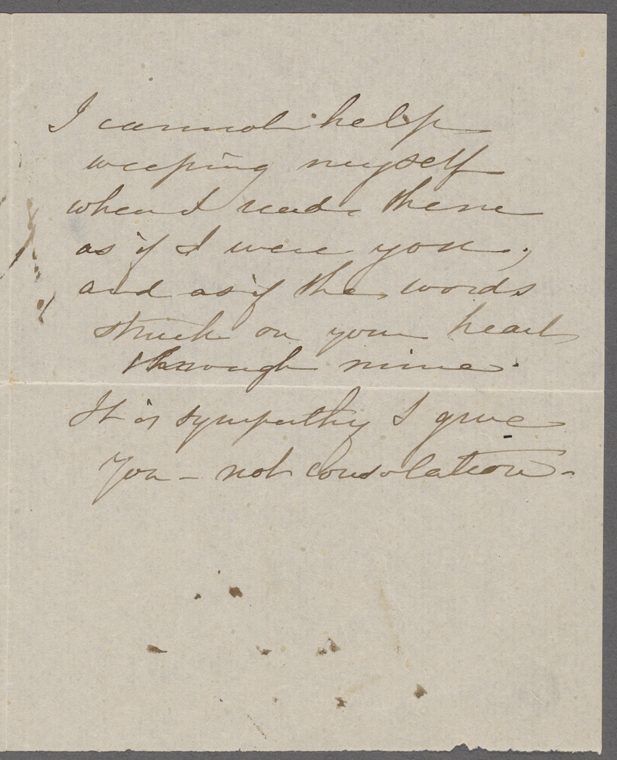 I cannot help
weeping myself
when I read them
as if I were you,
and as if the words
struck on your heart
through mine.
It is sympathy I give
You – not consolation –